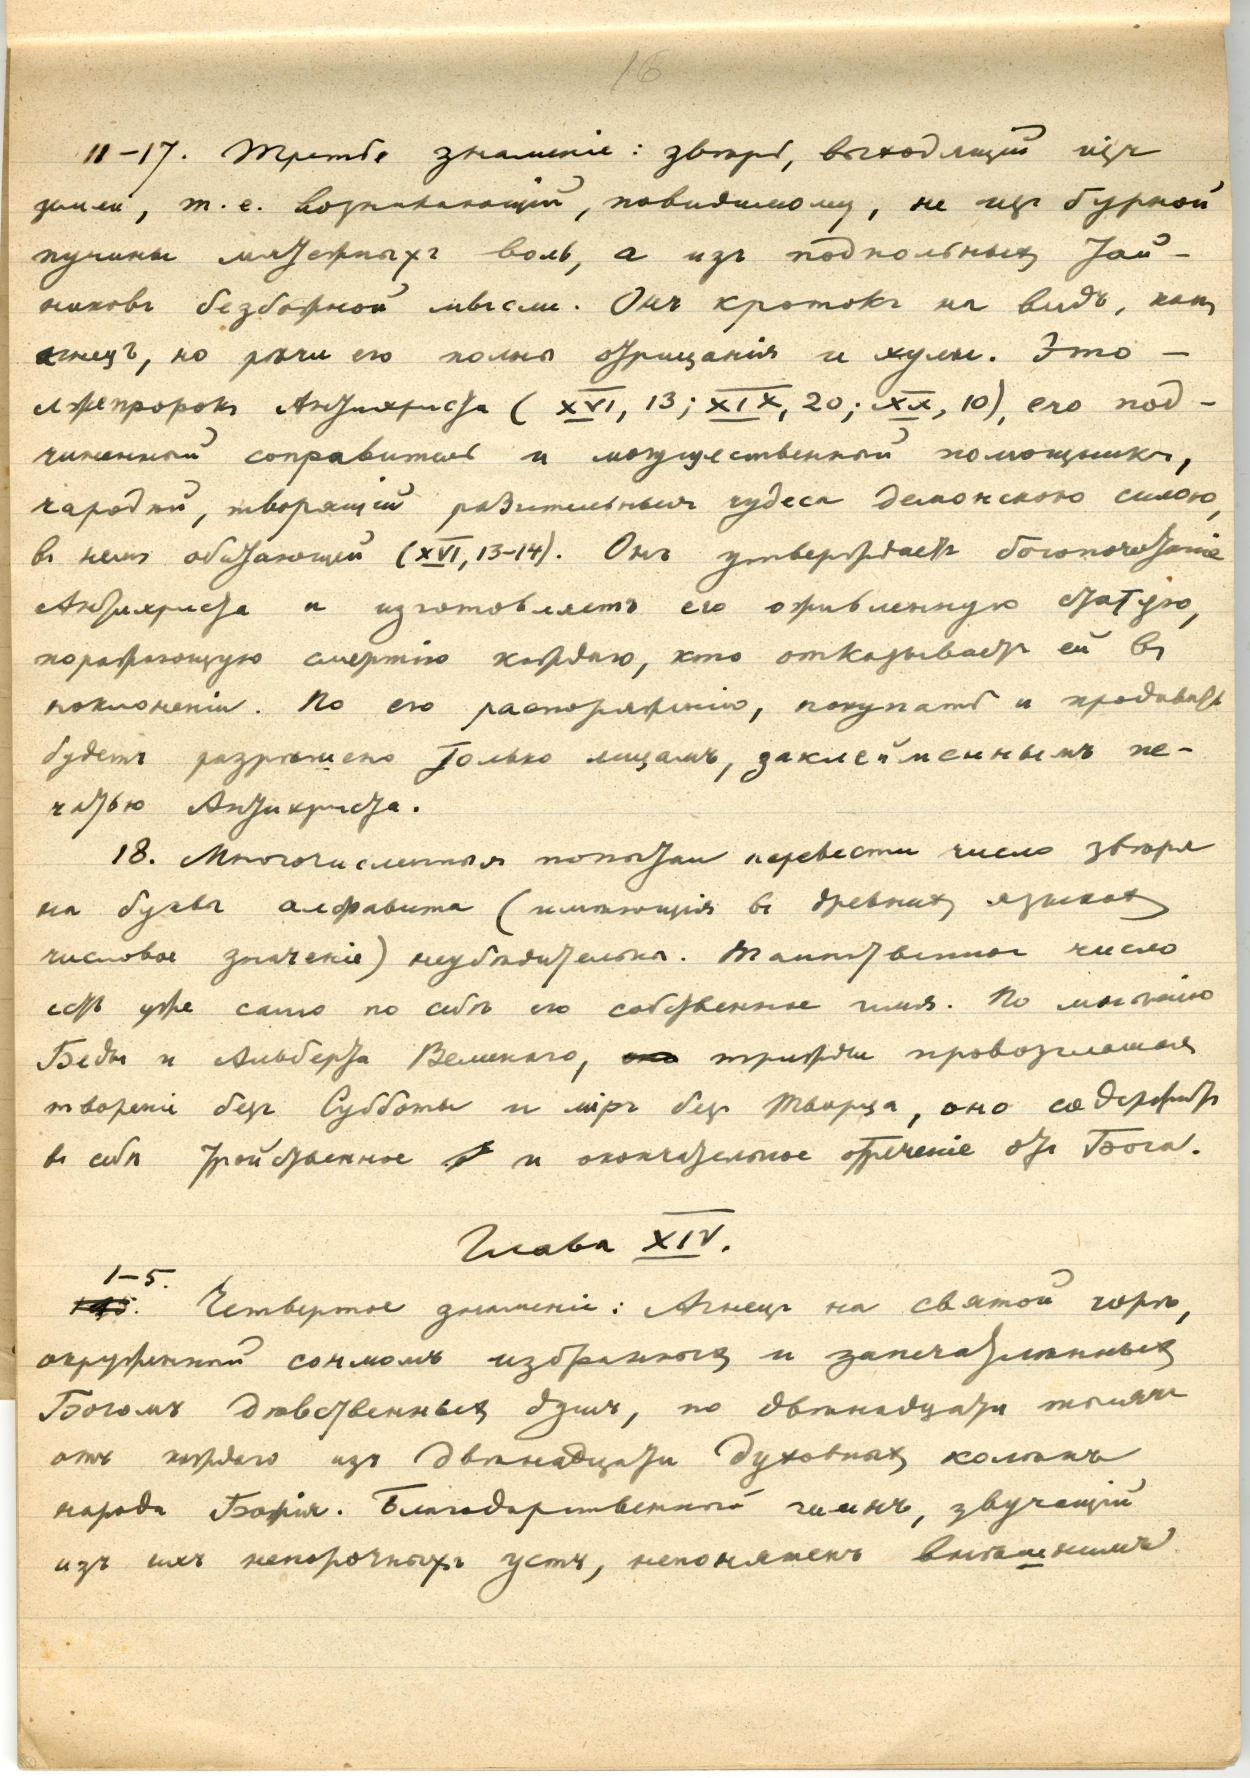 16
11-17. Третье знаменіе: звѣрь, выходящій изъ
земли, т. е. возникающій, повидимому, не изъ бурной
пучины мятежныхъ воль, а изъ подпольныхъ тай-
никовъ безбожной мысли. Онъ кротокъ на видъ, какъ
агнецъ, но рѣчи его полны отрицанія и хулы. Это —
лжепророкъ Антихриста (XVI, 13; XIX, 20; XX, 10), его под-
чиненный соправитель и могущественный помощникъ,
чародѣй, творящій разительныя чудеса демонскою силою,
въ немъ обитающей (XVI, 13-14). Онъ утверждаетъ богопочитаніе
Антихриста и изготовляетъ его оживленную статую,
поражающую смертію каждаго, кто отказываетъ ей въ
поклоненіи. По его распоряженію, покупать и продавать
будетъ разрѣшено только лицамъ, заклейменнымъ пе-
чатью Антихриста.
18. Многочисленныя попытки перевести число звѣря
на буквы алфавита (имѣющія въ древнихъ языкахъ
числовое значеніе) неубѣдительны. Таинственное число
есть уже само по себѣ его собственное имя. По мнѣнію
Беды и Альберта Великаго, трижды провозглашая
твореніе безъ Субботы и міръ безъ Творца, оно содержитъ
въ себѣ тройственное и окончательное отреченіе отъ Бога.
Глава XIV.
1-5.
Четвертое знаменіе: Агнецъ на святой горѣ,
окруженный сонмомъ избранныхъ и запечатлѣнныхъ
Богомъ дѣвственныхъ душъ, по двѣнадцати тысячъ
отъ каждаго изъ двѣнадцати духовныхъ колѣнъ
народа Божія. Благодарственный гимнъ, звучащій
изъ ихъ непорочныхъ устъ, непонятенъ внѣшнимъ